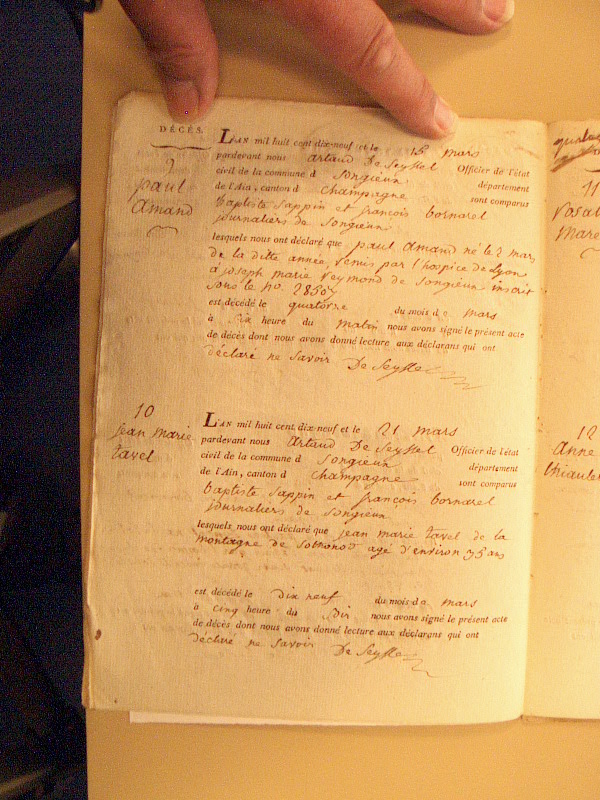 DÉCÈS.
9
paul
Amand
L'AN mil huit cent dix-neuf et le 15 mars
pardevant nous Artaud De Seyssel Officier de l'état
civil de la commune d Songieux département
de l'Ain, canton d Champagne sont comparus
baptiste Sappin et françois bornarel
journaliers de Songieux
lesquels nous ont déclaré que paul Amand né le 2 mars
de la ditte année, remis par l'hospice de Lyon
à joseph marie Veymond de Songieux inscrit
sous le no. 2850
est décédé le quatorze du mois de mars
à six heure du matin nous avons signé le présent acte
de décès dont nous avons donné lecture aux déclarans qui ont
déclaré ne savoir De Seyssel
10
jean marie
tavel
L'AN mil huit cent dix-neuf et le 21 mars
pardevant nous Artaud De Seyssel Officier de l'état
civil de la commune d Songieux département
de l'Ain, canton d Champagne sont comparus
baptiste Sappin et françois bornarel
journaliers de Songieux
lesquels nous ont déclaré que jean marie tavel de la
montagne de Sothonod agé d'environ 35 ans
est décédé le dix neuf du mois de mars
à cinq heure du soir nous avons signé le présent acte
de décès dont nous avons donné lecture aux déclarans qui ont
déclaré ne savoir De Seyssel
11
12
anne
thiaule